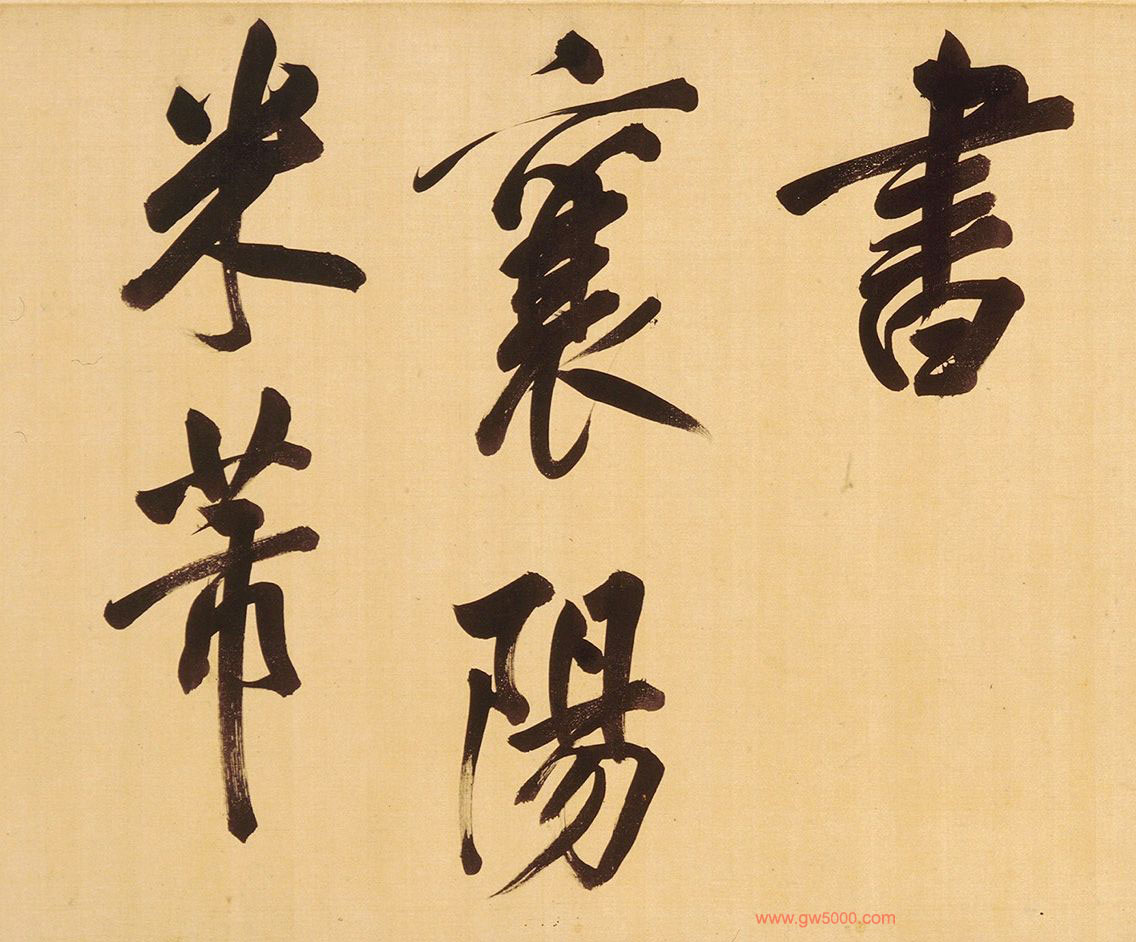 書
襄陽
米芾
www.gw5000.com